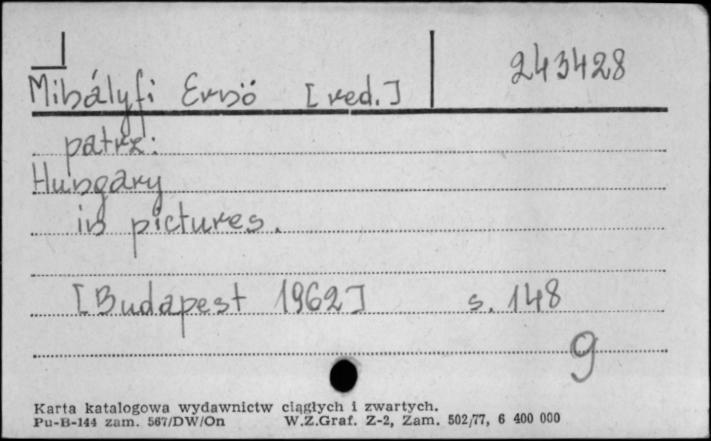 243428
Mihályfi Ernö [red.]
patrz:
Hungary
in pictures.
[Budapest 1962] s. 148
9
Karta katalogowa wydawnictw ciągłych i zwartych.
Pu-B-144 zam. 567/DW/On W.Z.Graf. Z-2, Zam. 502/77, 6 400 000